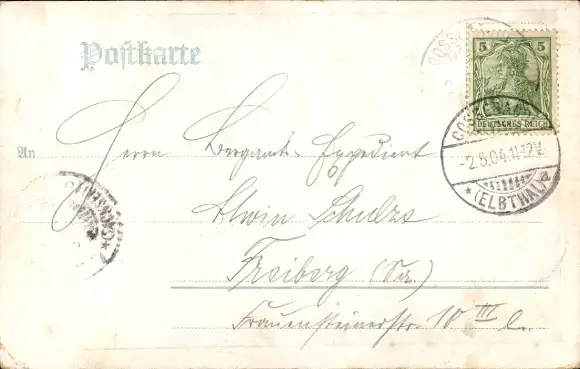 Postkarte
5 5
DEUTSCHES REICH
-2.5.04.11-12V.
*(ELBTHAL)a
An Herrn Bergamts-Expedient
Alwin Schulze
Freiberg (Sa.)
Frauensteinerstr. 10 III l.